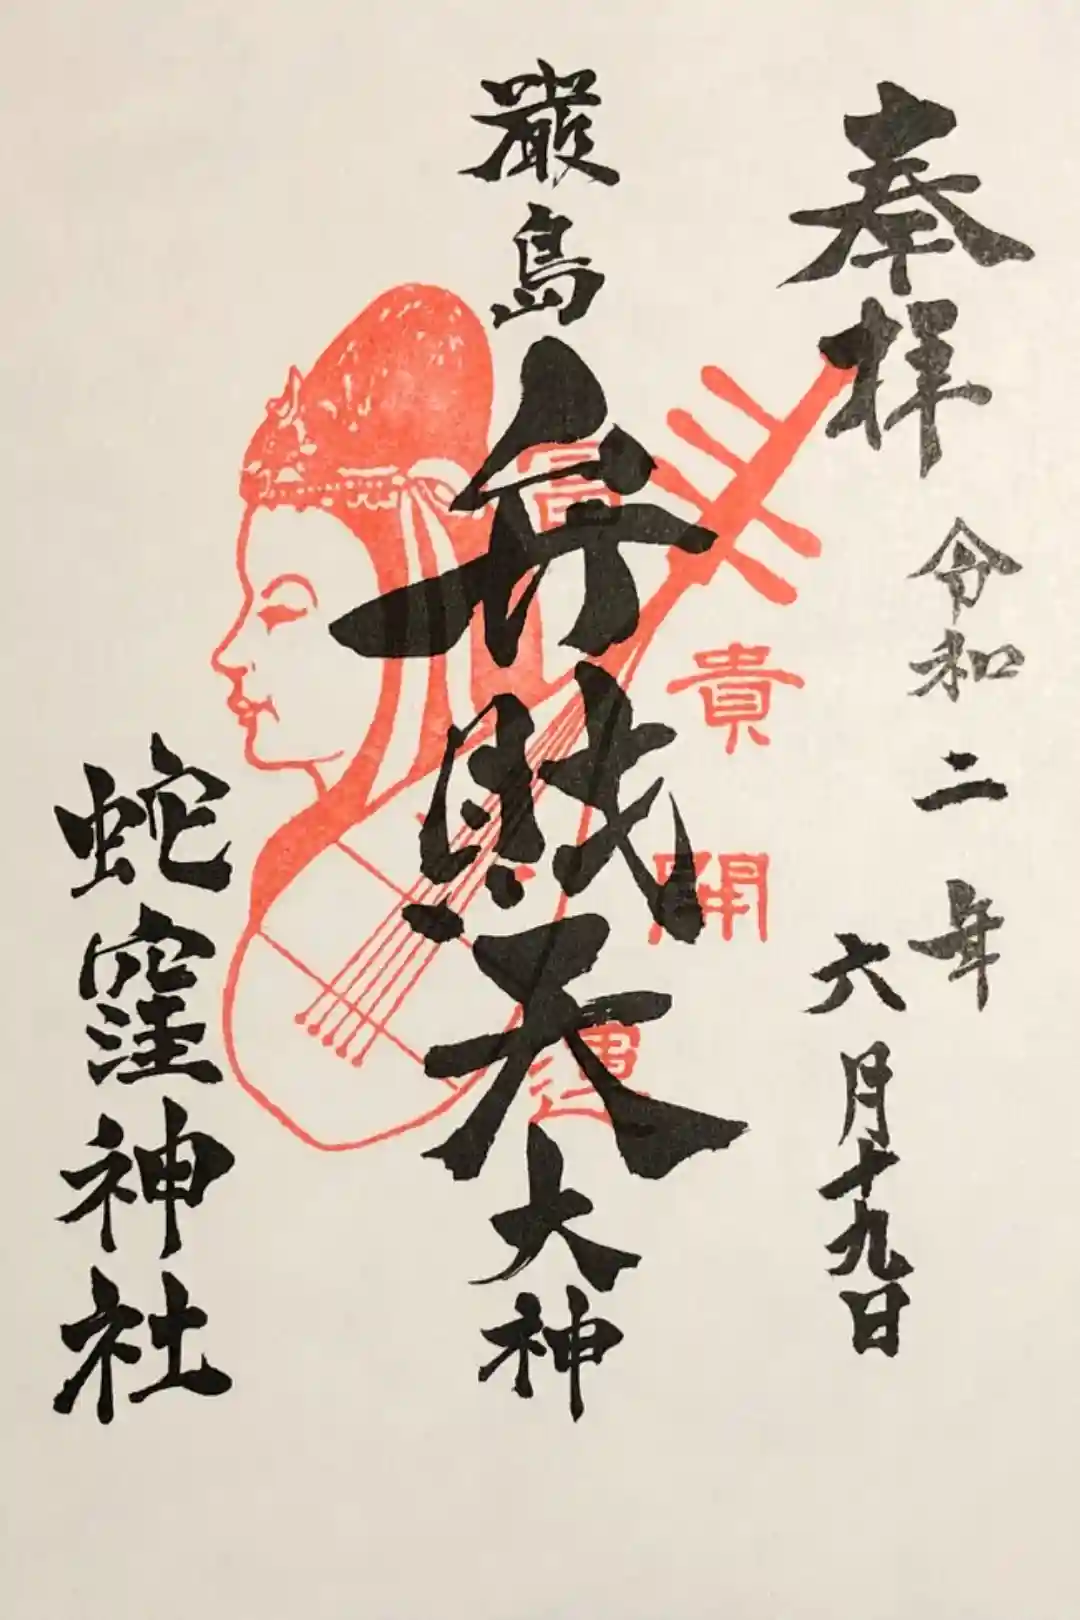 奉拝
令和二年
六月十九日
嚴島
弁財天
大神
富
貴
開
運
蛇窪神社